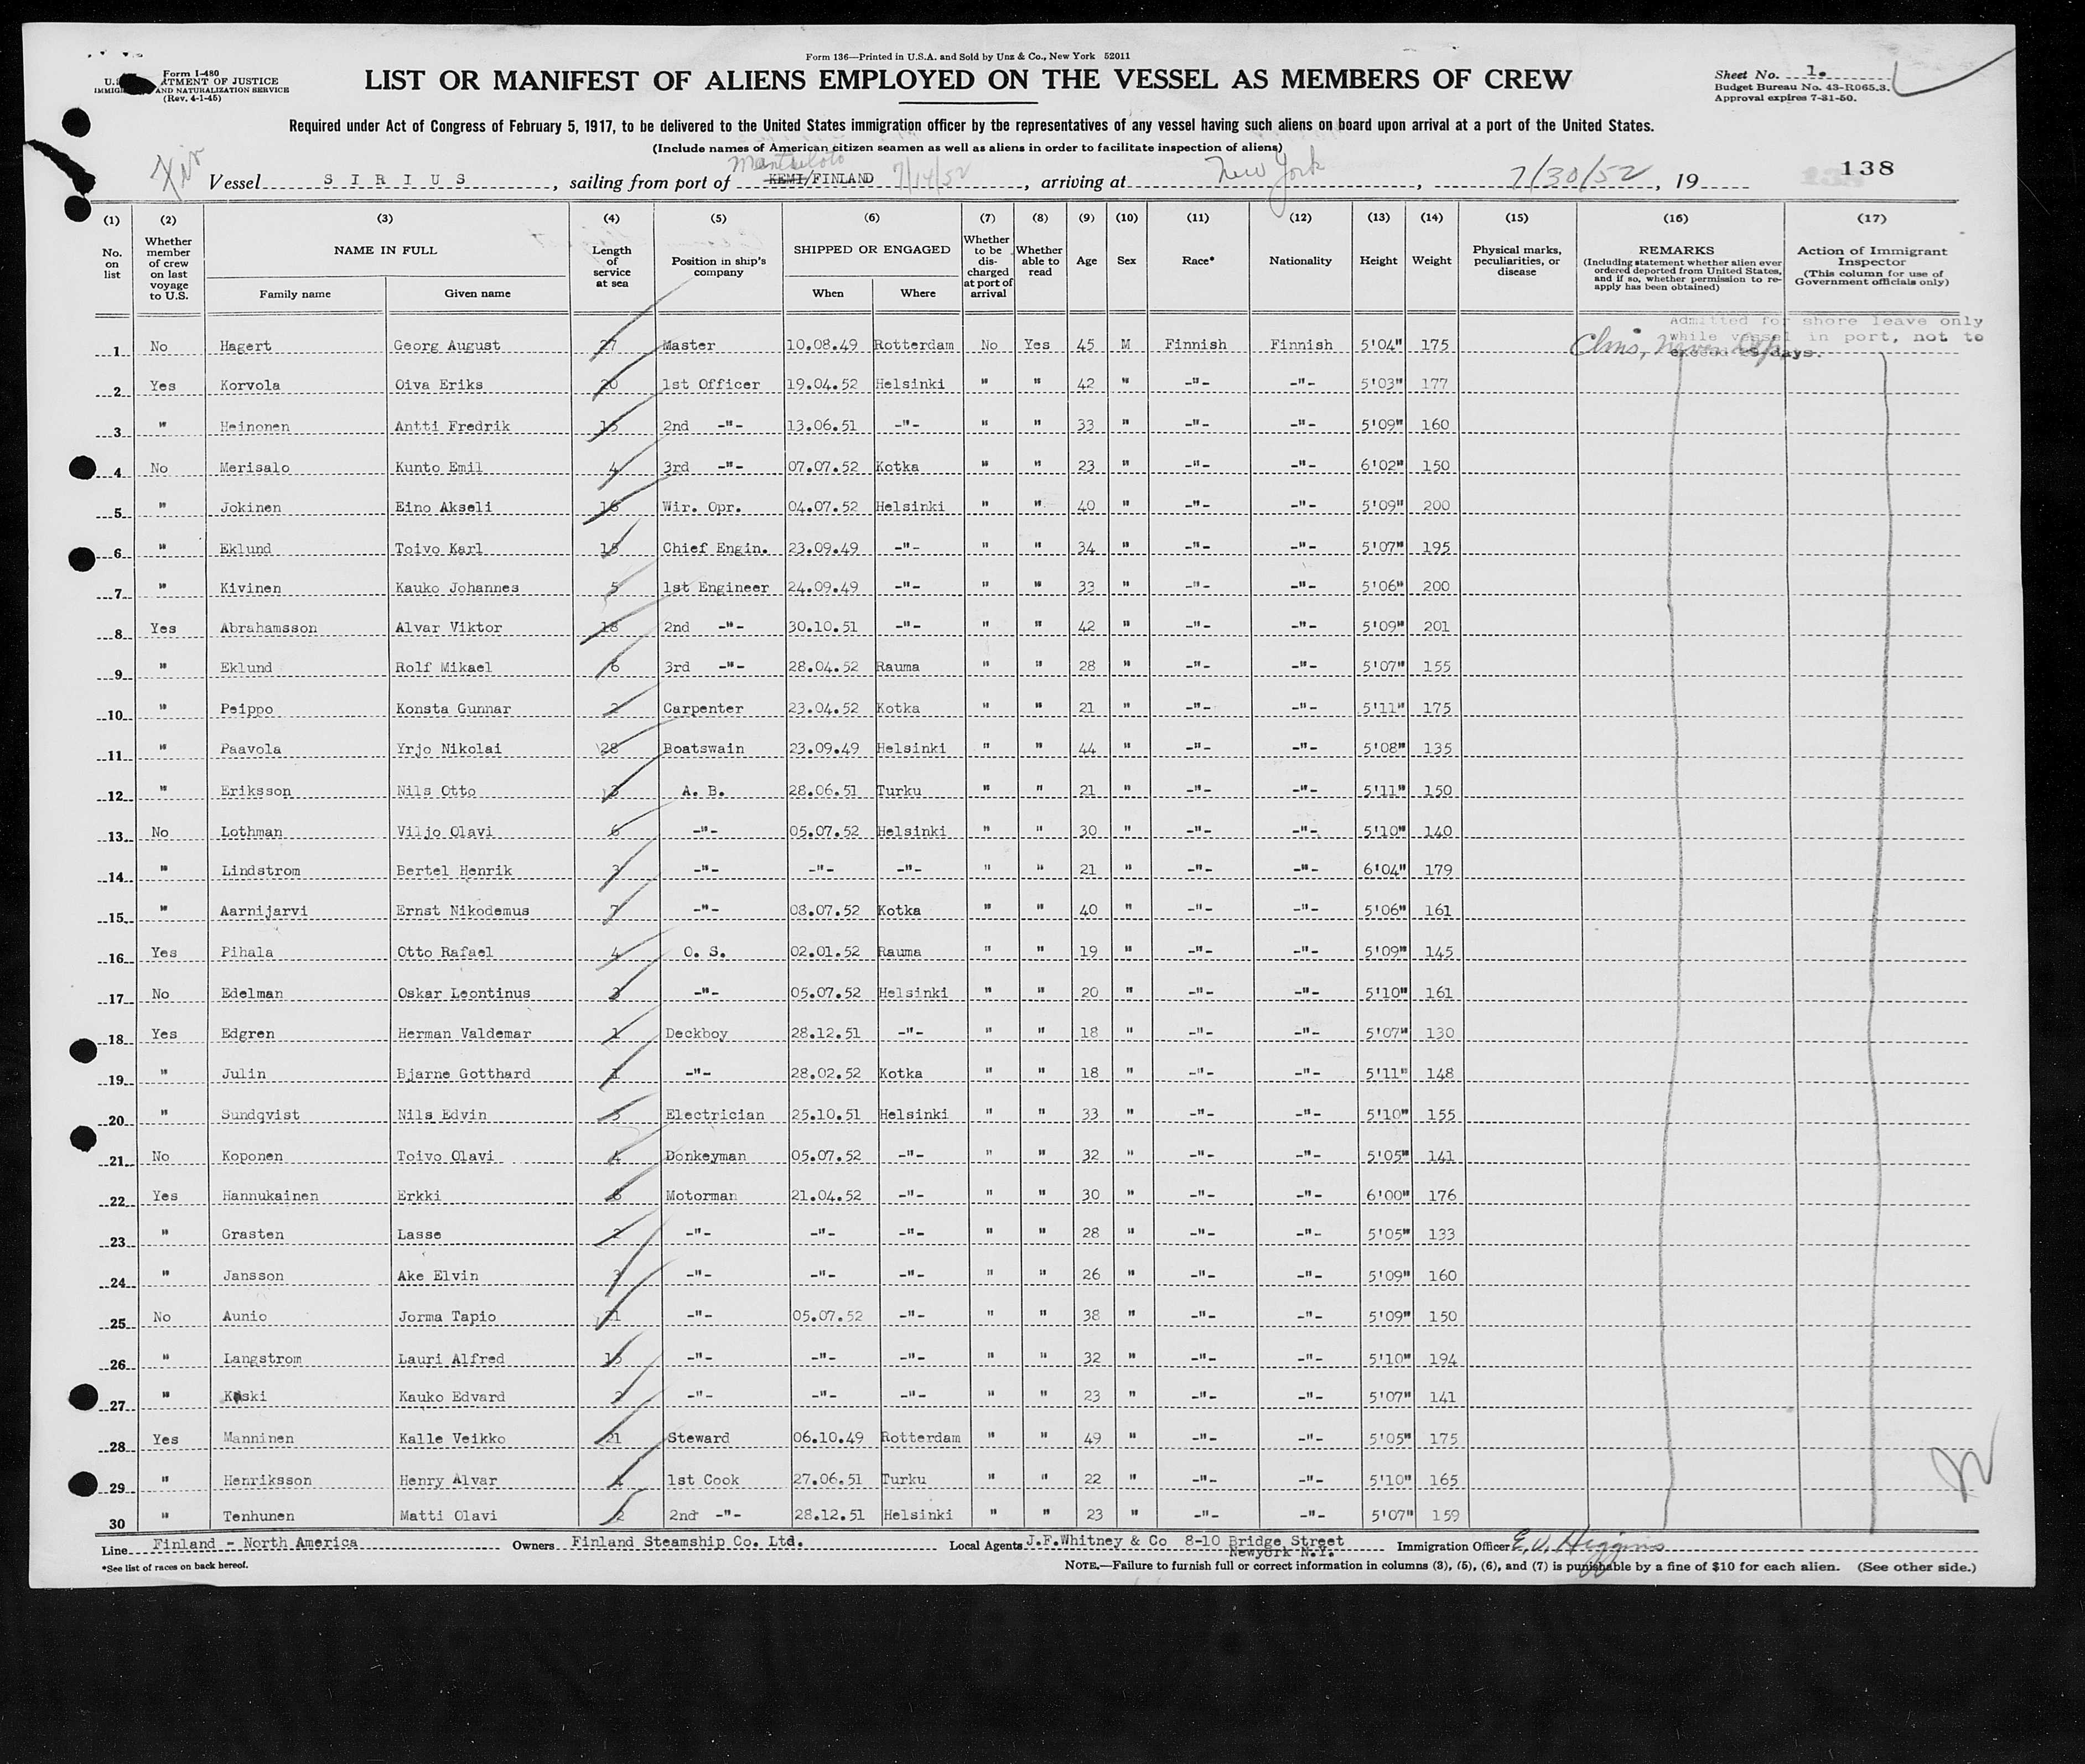 Form 136—Printed in U.S.A. and Sold by Unz & Co., New York 52011
Form I-480
U.S. DEPARTMENT OF JUSTICE
IMMIGRATION AND NATURALIZATION SERVICE
(Rev. 4-1-45)
LIST OR MANIFEST OF ALIENS EMPLOYED ON THE VESSEL AS MEMBERS OF CREW
Sheet No. 1.
Budget Bureau No. 43-R065.3.
Approval expires 7-31-50.
Required under Act of Congress of February 5, 1917, to be delivered to the United States immigration officer by the representatives of any vessel having such aliens on board upon arrival at a port of the United States.
(Include names of American citizen seamen as well as aliens in order to facilitate inspection of aliens)
Vessel SIRIUS, sailing from port of Mantyluoto KEMI/FINLAND 7/14/52, arriving at New York, 7/30/52, 19
138
(1) (2) (3) (4) (5) (6) (7) (8) (9) (10) (11) (12) (13) (14) (15) (16) (17)
No. on list | Whether member of crew on last voyage to U.S. | NAME IN FULL | Length of service at sea | Position in ship's company | SHIPPED OR ENGAGED | Whether to be discharged at port of arrival | Whether able to read | Age | Sex | Race* | Nationality | Height | Weight | Physical marks, peculiarities, or disease | REMARKS (Including statement whether alien ever ordered deported from United States, and if so, whether permission to re-apply has been obtained) | Action of Immigrant Inspector (This column for use of Government officials only)
Family name | Given name | When | Where
Admitted for shore leave only
while vessel in port, not to
exceed 29 days.
1 No Hagert Georg August 27 Master 10.08.49 Rotterdam No Yes 45 M Finnish Finnish 5'04" 175
2 Yes Korvola Oiva Eriks 20 1st Officer 19.04.52 Helsinki " " 42 " -"- -"- 5'03" 177
3 " Heinonen Antti Fredrik 15 2nd -"- 13.06.51 -"- " " 33 " -"- -"- 5'09" 160
4 No Merisalo Kunto Emil 4 3rd -"- 07.07.52 Kotka " " 23 " -"- -"- 6'02" 150
5 " Jokinen Eino Akseli 16 Wir. Opr. 04.07.52 Helsinki " " 40 " -"- -"- 5'09" 200
6 " Eklund Toivo Karl 15 Chief Engin. 23.09.49 -"- " " 34 " -"- -"- 5'07" 195
7 " Kivinen Kauko Johannes 5 1st Engineer 24.09.49 -"- " " 33 " -"- -"- 5'06" 200
8 Yes Abrahamsson Alvar Viktor 18 2nd -"- 30.10.51 -"- " " 42 " -"- -"- 5'09" 201
9 " Eklund Rolf Mikael 6 3rd -"- 28.04.52 Rauma " " 28 " -"- -"- 5'07" 155
10 " Peippo Konsta Gunnar 2 Carpenter 23.04.52 Kotka " " 21 " -"- -"- 5'11" 175
11 " Paavola Yrjo Nikolai 28 Boatswain 23.09.49 Helsinki " " 44 " -"- -"- 5'08" 135
12 " Eriksson Nils Otto 3 A. B. 28.06.51 Turku " " 21 " -"- -"- 5'11" 150
13 No Lothman Viljo Olavi 6 -"- 05.07.52 Helsinki " " 30 " -"- -"- 5'10" 140
14 " Lindstrom Bertel Henrik 2 -"- -"- -"- " " 21 " -"- -"- 6'04" 179
15 " Aarnijarvi Ernst Nikodemus 7 -"- 08.07.52 Kotka " " 40 " -"- -"- 5'06" 161
16 Yes Pihala Otto Rafael 4 O. S. 02.01.52 Rauma " " 19 " -"- -"- 5'09" 145
17 No Edelman Oskar Leontinus 3 -"- 05.07.52 Helsinki " " 20 " -"- -"- 5'10" 161
18 Yes Edgren Herman Valdemar 1 Deckboy 28.12.51 -"- " " 18 " -"- -"- 5'07" 130
19 " Julin Bjarne Gotthard 1 -"- 28.02.52 Kotka " " 18 " -"- -"- 5'11" 148
20 " Sundqvist Nils Edvin Electrician 25.10.51 Helsinki " " 33 " -"- -"- 5'10" 155
21 No Koponen Toivo Olavi 4 Donkeyman 05.07.52 -"- " " 32 " -"- -"- 5'05" 141
22 Yes Hannukainen Erkki 6 Motorman 21.04.52 -"- " " 30 " -"- -"- 6'00" 176
23 " Grasten Lasse 2 -"- -"- -"- " " 28 " -"- -"- 5'05" 133
24 " Jansson Ake Elvin -"- -"- -"- " " 26 " -"- -"- 5'09" 160
25 No Aunio Jorma Tapio 21 -"- 05.07.52 -"- " " 38 " -"- -"- 5'09" 150
26 " Langstrom Lauri Alfred 15 -"- -"- -"- " " 32 " -"- -"- 5'10" 194
27 " Koski Kauko Edvard 2 -"- -"- -"- " " 23 " -"- -"- 5'07" 141
28 Yes Manninen Kalle Veikko 21 Steward 06.10.49 Rotterdam " " 49 " -"- -"- 5'05" 175
29 " Henriksson Henry Alvar 4 1st Cook 27.06.51 Turku " " 22 " -"- -"- 5'10" 165
30 " Tenhunen Matti Olavi 2 2nd -"- 28.12.51 Helsinki " " 23 " -"- -"- 5'07" 159
Line Finland - North America Owners Finland Steamship Co. Ltd. Local Agents J.F.Whitney & Co 8-10 Bridge Street Newyork N.Y. Immigration Officer E. V. Higgins
*See list of races on back hereof.
NOTE.—Failure to furnish full or correct information in columns (3), (5), (6), and (7) is punishable by a fine of $10 for each alien. (See other side.)